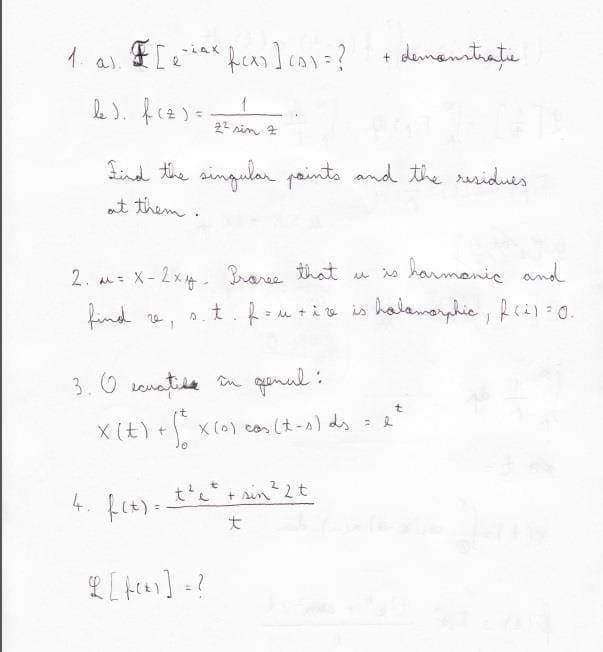 1. a). F[e^{-iax} f(x)](s) = ? + demonstrație
b). f(z) = \frac{1}{z^2 sin z}.
Find the singular points and the residues
at them.
2. u = x - 2xy. Prove that u is harmonic and
find v, s.t. f = u + iv is holomorphic, f(i) = 0.
3. O ecuație în genul:
x(t) + \int_0^t x(s) cos(t-s) ds = e^t
4. f(t) = \frac{t^2 e^t + sin^2 2t}{t}
L[f(t)] = ?